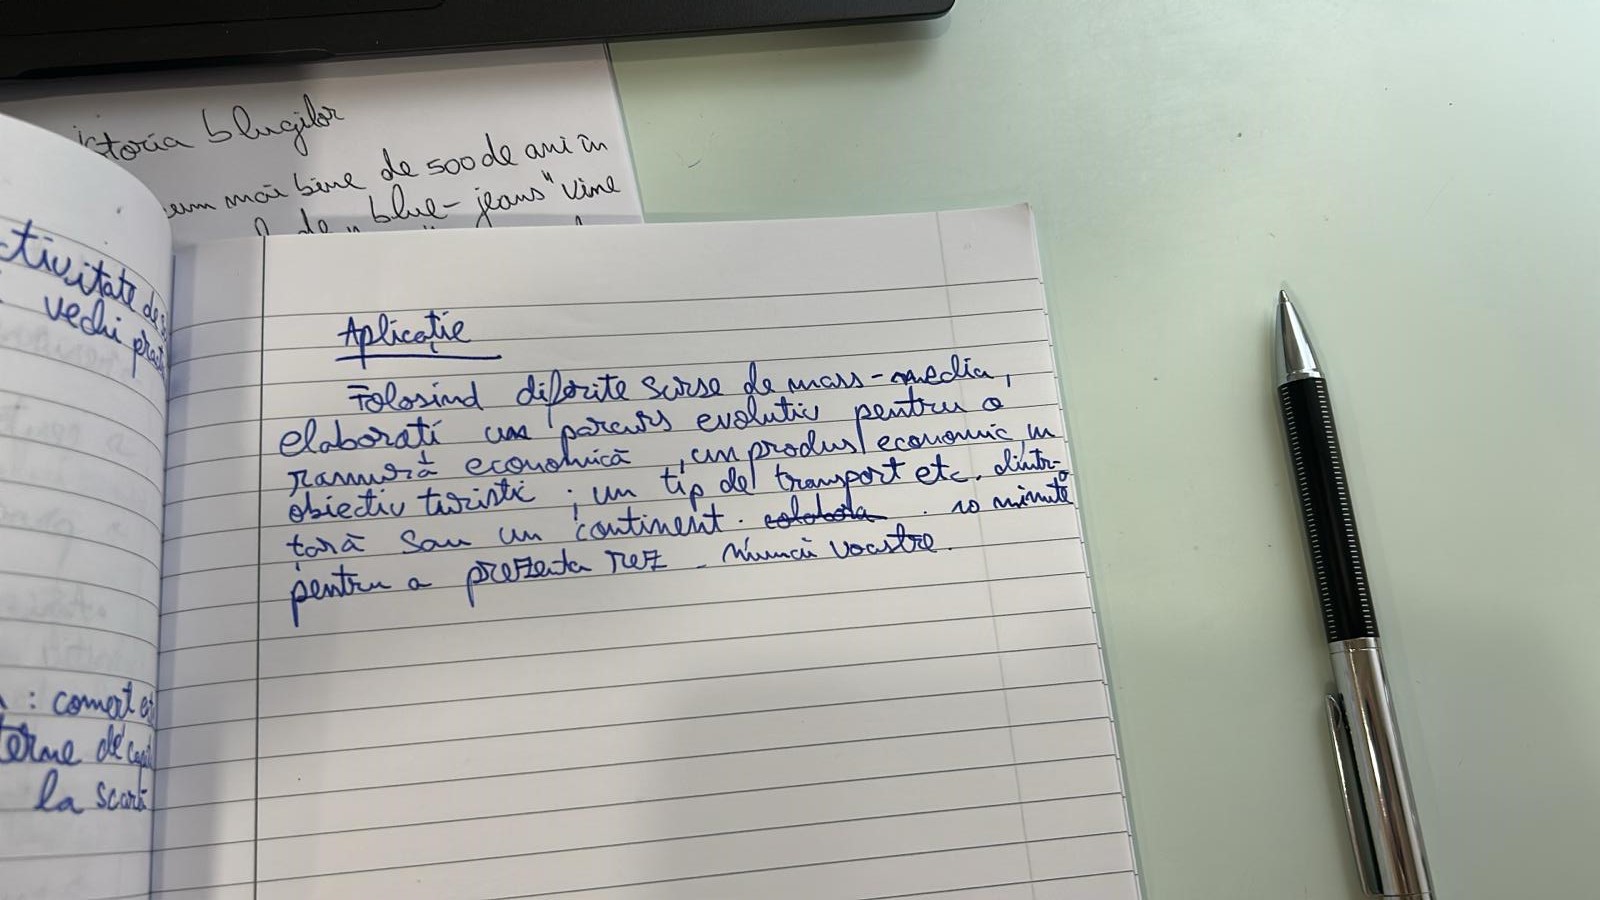 istoria blugilor
um mai bine de 500 de ani în
de blue-jeans" vine
ctivitate de
vechi
: comerț
terne de
la scară
Aplicație
Folosind diferite surse de mass-media,
elaborati un parcurs evolutiv pentru o
ramură economică, un produs economic, un
obiectiv turistic; un tip de transport etc. dintr-o
țară sau un continent. . 10 minute
pentru a prezenta rez. muncii voastre.